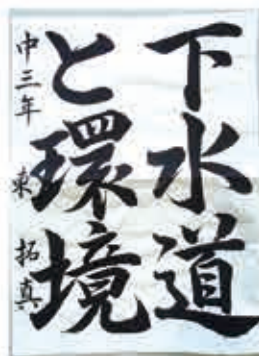 下水道
と環境
中三年 東 拓真